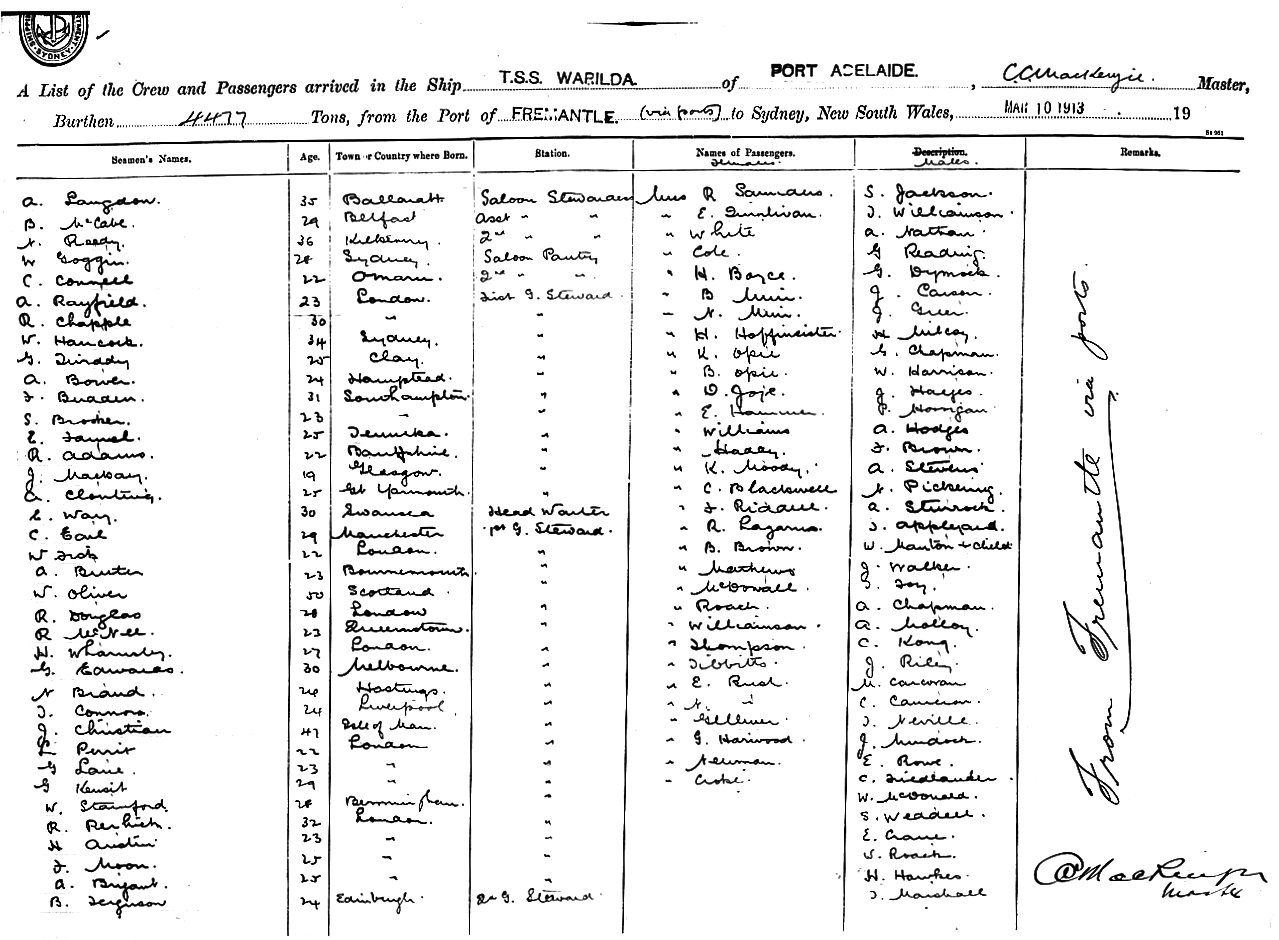 SYDNEY
A List of the Crew and Passengers arrived in the Ship T.S.S. WARILDA. of PORT ADELAIDE. , C.C. MacKenzie. Master,
Burthen 4477 Tons, from the Port of FREMANTLE. (via ports) to Sydney, New South Wales, MAR 10 1913 19
Seamen's Names. Age. Town or Country where Born. Station. Names of Passengers. Description. Remarks.
Females. Males.
A. Langdon. 35 Ballaratt Saloon Stewardess Miss R Saunders. S. Jackson.
B. McCabe. 29 Belfast Asst " " " E. Sundivan. J. Williamson.
N. Ready. 36 Kilkenny. 2nd " " " White A. Nathan.
W Goggin. 28 Sydney. Saloon Pantry " Cole. G Reading
C. Connell 22 Omaru. 2nd " " " H. Boyce. G. Dymock.
A. Rayfield. 23 London. First G. Steward. " B Muir. J. Carson.
R. Chapple 30 " " " N. Muir. J. Greer.
W. Hancock. 34 Sydney. " " H. Hoffinsister. H Milcoy.
G. 25 Clay. " " K. Opie G. Chapman.
A. Bower. 24 Hampstead. " " B. Opie. W. Harrison.
F. 31 Southampton. " " D. J. Hayes
S. Brooker. 23 " " " E. Hammer P. Horrigan
E. 25 Temuka. " " Williams A. Hodges
R. Adams. 22 Banffshire. " " F. Brown.
J. Mackay. 19 Glasgow. " " K. Moody. A. Stevens
A. 25 Gt Yarmouth. " " C. Blackwell N. Pickering
E. Way. 30 Swansea Head Waiter " F. Riddell A. Sturrock.
C. Earl 29 Manchester 1st G. Steward. " R. Lazarus J. Appleyard.
W 22 London. " " B. Brown. W. Manton + child
A. 23 Bournemouth. " " Mathews J. Walker.
W. Oliver 50 Scotland. " " McDowall Foy.
R. Douglas 28 London " " Roach. A. Chapman.
R McNee. 23 Queenstown. " " Williamson A. Molloy.
H. Wharmby. 27 London. " " Thompson C. Kong.
G. Edwards. 30 Melbourne. " " Tibbitts. J. Riley.
N Brand. 26 Hastings. " " E. Rush M. Corcoran
J. Connors. 24 Liverpool. " " N. " C. Cameron.
J. Christian 47 Isle of Man. " " J. Neville.
L. 22 London " " G. Harwood J. Murdoch.
G Lane. 23 " " " Newman. E. Rowe.
G 29 " " " Croke. C. Friedlander
W. Stamford. 28 Bermingham. " W. McDonald.
R. 32 London. " S. Weddell
H Austin 23 " " E. Crane.
F. Moon. 25 " " J. Roach.
A. Bryant. 25 " " H. Hawkes.
B. Ferguson 24 Edinburgh. 2nd G. Steward. J. Marshall
From Fremantle via ports.
C MacKenzie
Master